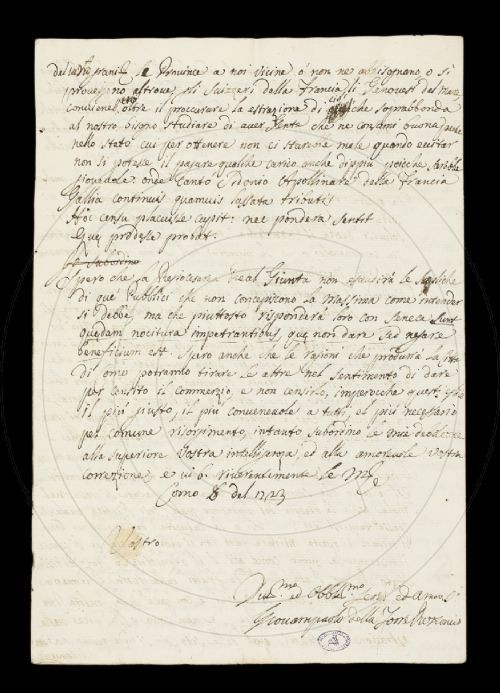 le Province a noi vicine ò non ne abbisognano, o si
provegono altrove, gli Suizzeri dalla Francia, li Genovesi dal mare
conviene oltre il procurare la estrazione di che soprabbonda
al nostro bisogno studiare di aver gente che ne consumi buona parte
nello stato cui per ottenere non ci starebbe male quando evitar
non si potesse il pagare qualche carico anche di più poiche sarebbe
giovevole: onde cantò Sidonio Apollinare della Francia
Gallia continuis quamvis lassata tributis
Hoc censu placuisse cupit: nec pondera sentit
Quæ prodesse probat.
Io subordino
Spero che la Real Giunta non esaudirà le suppliche
di que Pubblici che non concepiscono la massima come intender
si debbe, ma che piuttosto risponderà loro con Seneca sunt
quædam nocitura impetrantibus, quæ non dare sed negare
beneficium est. Spero anche che le ragioni che produrrà la
di Como potranno tirare le altre nel sentimento di dare
per censito il commerzio, e non censirlo, imperocche questo
il più giusto, il più convenevole a tutti, e 'l più necessario
per comune risorgimento, intanto subordino le mie
alla superiore vostra intelligenza, ed alla amorevole vostra
correzione, e vi b. riverentemente le
Como 8 del 1723
ed
Giovampaolo della Torre Rezzonico